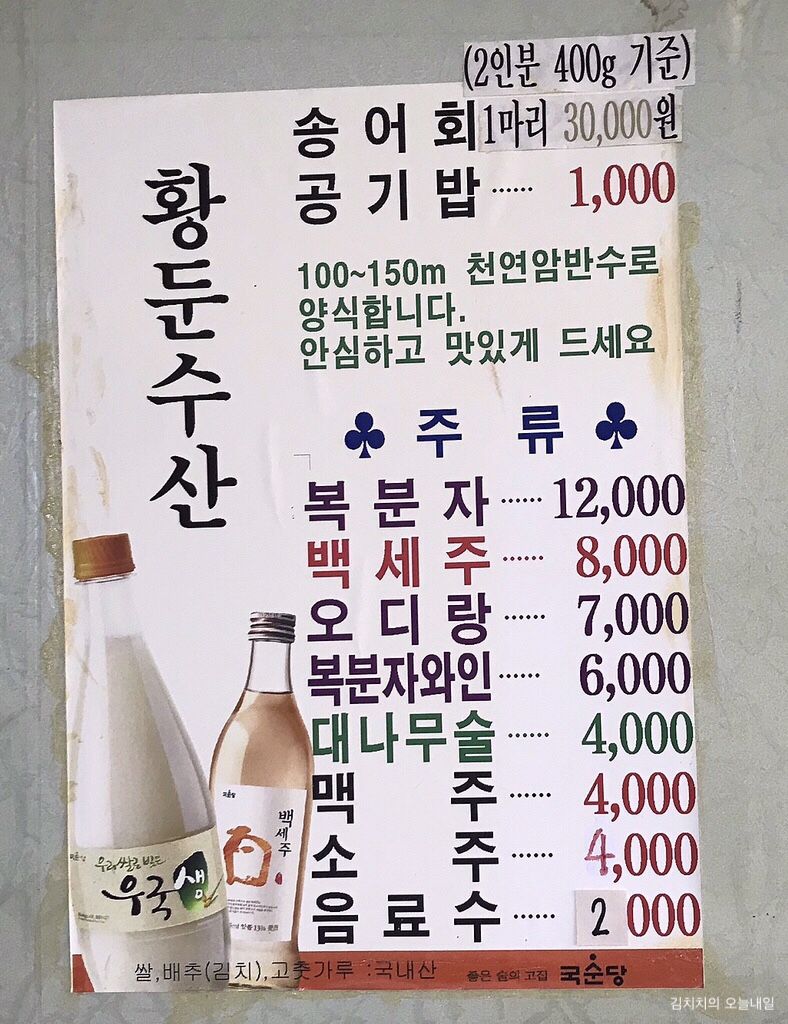 (2인분 400g 기준)
송어회 1마리 30,000원
공기밥 ······ 1,000
황둔수산
100~150m 천연암반수로
양식합니다.
안심하고 맛있게 드세요
♣ 주 류 ♣
복분자 ······ 12,000
백세주 ······ 8,000
오디랑 ······ 7,000
복분자와인 ······ 6,000
대나무술 ······ 4,000
맥주 ······ 4,000
소주 ······ 4,000
음료수 ······ 2 000
우리쌀로 빚은
우국생
국순당
백세주
쌀,배추(김치),고춧가루 :국내산
좋은 술의 고집 국순당
김치치의 오늘내일